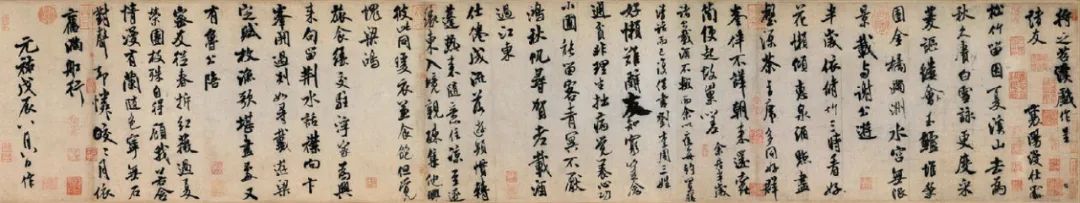 將之苕溪戲作呈
諸友 襄陽漫仕黻
松竹留因夏溪山去為
秋久賡白雪詠更度采
菱謳縷會玉鱸堆案
團金橘滿洲水宮無限
景載與謝公遊
半歲依修竹三時看好
花懶傾惠泉酒點盡
壑源茶主席多同好群
峰伴不譁朝來還蠹
簡便起故巢嗟 余居半歲
諸公載酒不輟而余以疾每約置膳
清話而已復借書劉李周三姓
好懶難辭友知窮豈念
通貧非理生拙病覺養心功
小圃能留客青冥不厭
鴻秋帆尋賀老載酒
過江東
仕倦成流落遊頻慣轉
蓬熱來隨意住涼至逐
緣東入境親疏集他鄉
彼此同暖衣兼食飽但覺
愧梁鴻
旅食緣交駐浮家為興
來句留荊水話襟向卞
峰開過剡如尋戴遊梁
定賦枚漁歌堪畫處又
有魯公陪
密友從春拆紅薇過夏
榮團枝殊自得顧我若含
情漫有蘭隨色寧無石
對聲卻憐皎皎月依
舊滿船行
元祐戊辰八月八日作